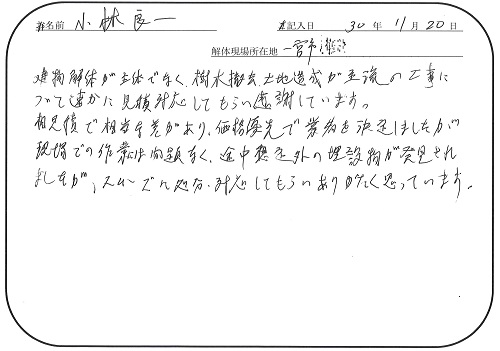 お名前 小林良一 ご記入日 30年 11月 20日
解体現場所在地 一宮市
建物解体が主体でなく、樹木撤去、土地造成が主流の工事に
ついて速かに見積対応してもらい感謝しています。
相見積で相当な差があり、価格優先で業者を決定しましたが
現場での作業は問題なく、途中想定外の埋設物が発見され
ましたが、スムーズに処分、対応してもらいありがたく思っています。